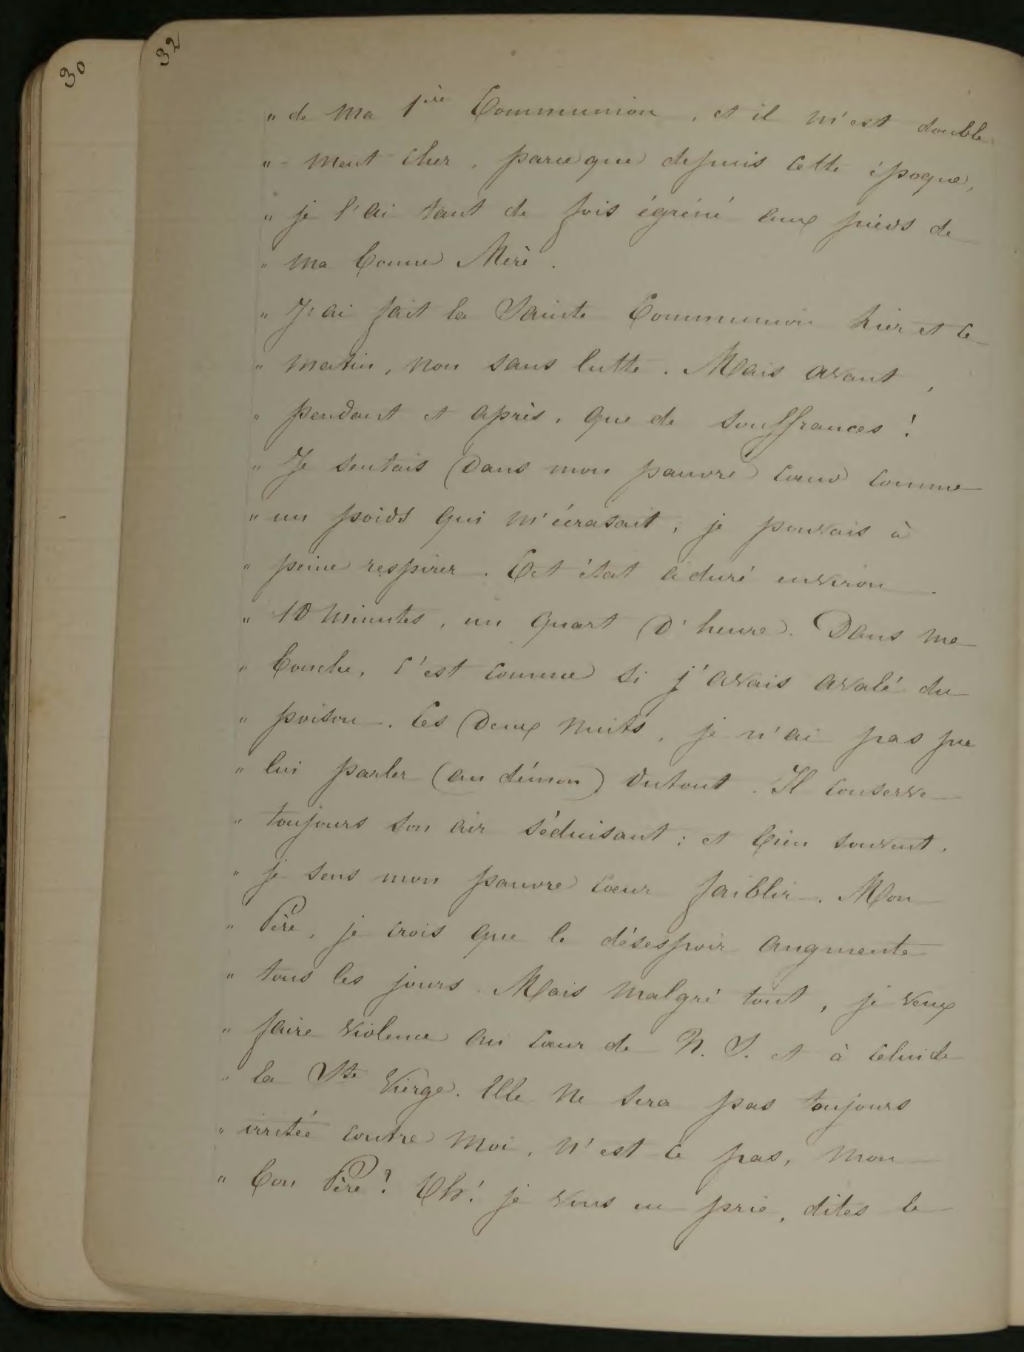 30
32
" de ma 1ière Communion, et il m'est double
" - ment cher, parceque depuis cette époque,
" je l'ai tant de fois égréné aux pieds de
" ma bonne Mère.
" J'ai fait la Sainte Communion hier et ce
" matin, non sans lutte. Mais avant,
" pendant et après, que de souffrances !
" Je sentais dans mon pauvre cœur comme
" un poids qui m'écrasait, je pouvais à
" peine respirer. Cet état a duré environ
" 10 minutes, un quart d'heure. Dans ma
" bouche, c'est comme si j'avais avalé du
" poison. Ces deux nuits, je n'ai pas pu
" lui parler (au démon) dutout. Il conserve
" toujours son air séduisant : et bien souvent,
" je sens mon pauvre cœur faiblir. Mon
" Père, je crois que le désespoir augmente
" tous les jours. Mais malgré tout, je veux
" faire violence au cœur de N. S. et à celui de
" la Ste Vierge. Elle ne sera pas toujours
" irritée contre moi, n'est ce pas, mon
" bon Père ? Oh ! je vous en prie, dites le